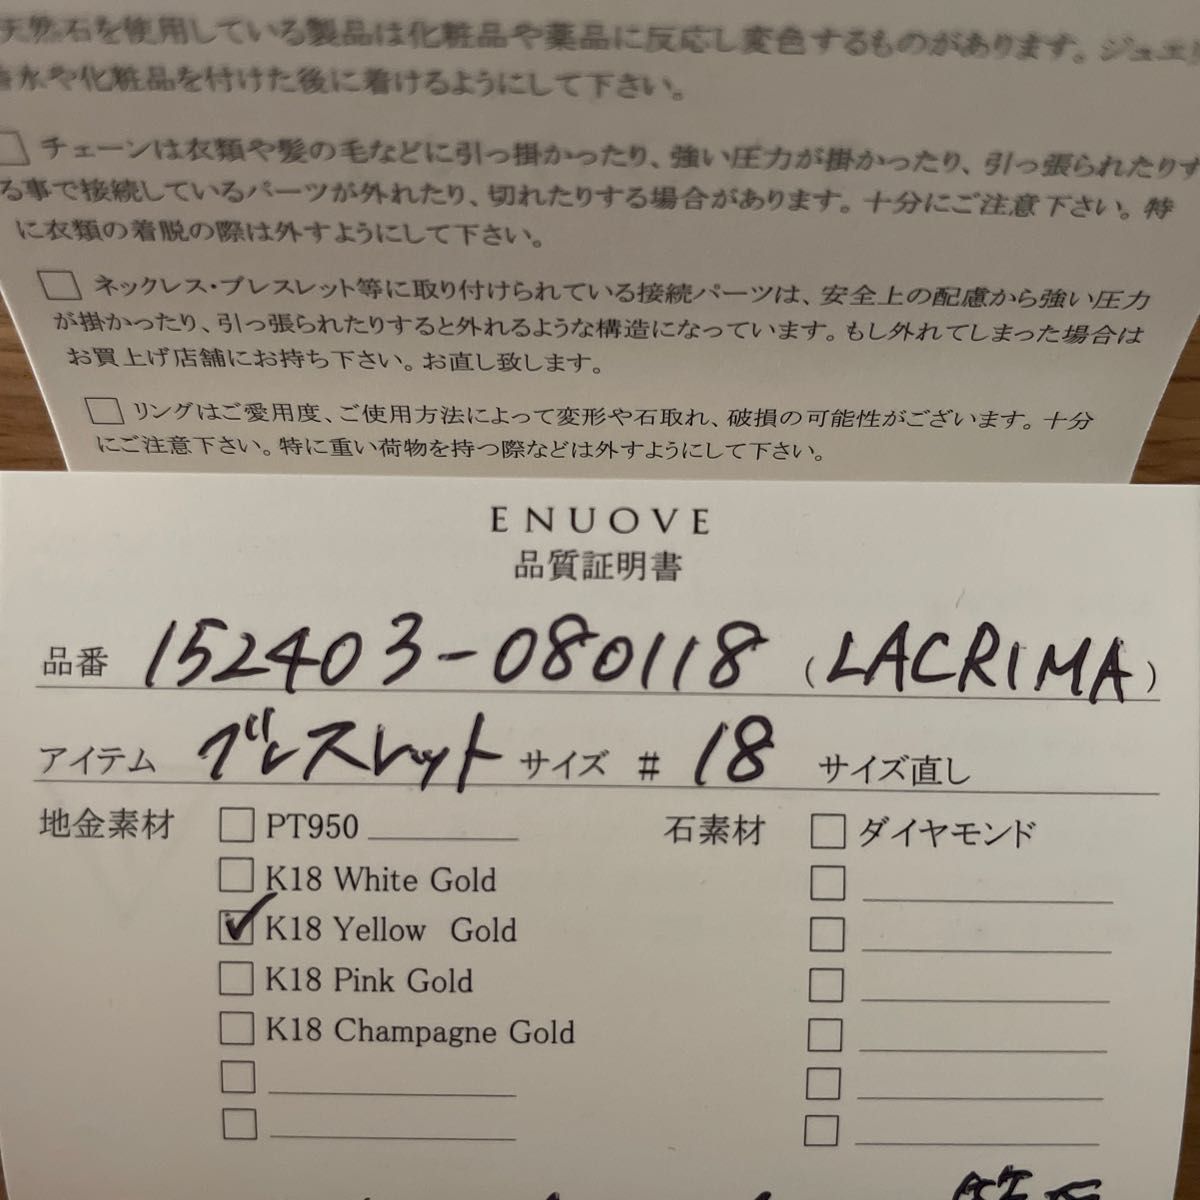 天然石を使用している製品は化粧品や薬品に反応し変色するものがあります。ジュエリ
香水や化粧品を付けた後に着けるようにして下さい。
チェーンは衣類や髪の毛などに引っ掛かったり、強い圧力が掛かったり、引っ張られたりす
る事で接続しているパーツが外れたり、切れたりする場合があります。十分にご注意下さい。特
に衣類の着脱の際は外すようにして下さい。
ネックレス・ブレスレット等に取り付けられている接続パーツは、安全上の配慮から強い圧力
が掛かったり、引っ張られたりすると外れるような構造になっています。もし外れてしまった場合は
お買上げ店舗にお持ち下さい。お直し致します。
リングはご愛用度、ご使用方法によって変形や石取れ、破損の可能性がございます。十分
にご注意下さい。特に重い荷物を持つ際などは外すようにして下さい。
ENUOVE
品質証明書
品番 152403-080118 (LACRIMA)
アイテム ブレスレット サイズ # 18 サイズ直し
地金素材 PT950 石素材 ダイヤモンド
K18 White Gold
K18 Yellow Gold
K18 Pink Gold
K18 Champagne Gold